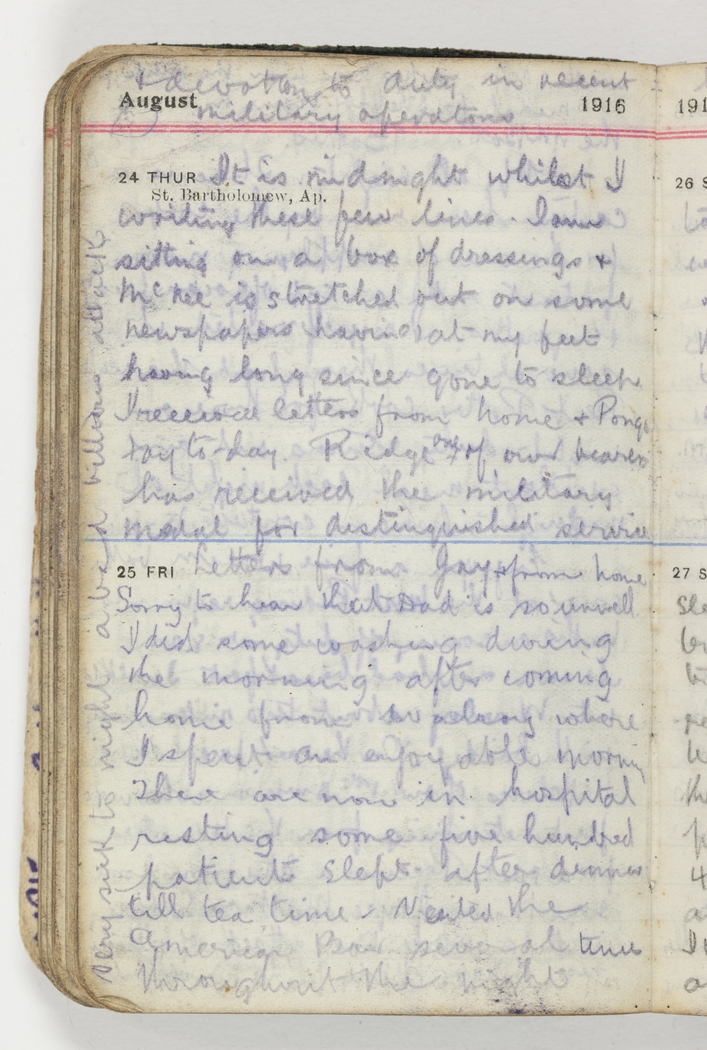 & devotion to duty in recent
August 1916
military operations
24 THUR It is midnight whilst I
St. Bartholomew, Ap.
writing these few lines. I am
sitting on a box of dressings &
McKee is stretched out on some
newspapers having sat my feet
having long since gone to sleep
I received letters from home &
to-day. Ridge one of our bearers
has received the military
medal for distinguished service
25 FRI Letters from Jay & from home
Sorry to hear that Dad is so unwell
I did some washing during
the morning after coming
home from where
I spent an enjoyable morning
There are now in hospital
resting some five hundred
patients Slept after dinner
till tea time. Visited the
America Bar several times
throughout the night
Very sick to night a bad billious attack
191
26 S
27 S